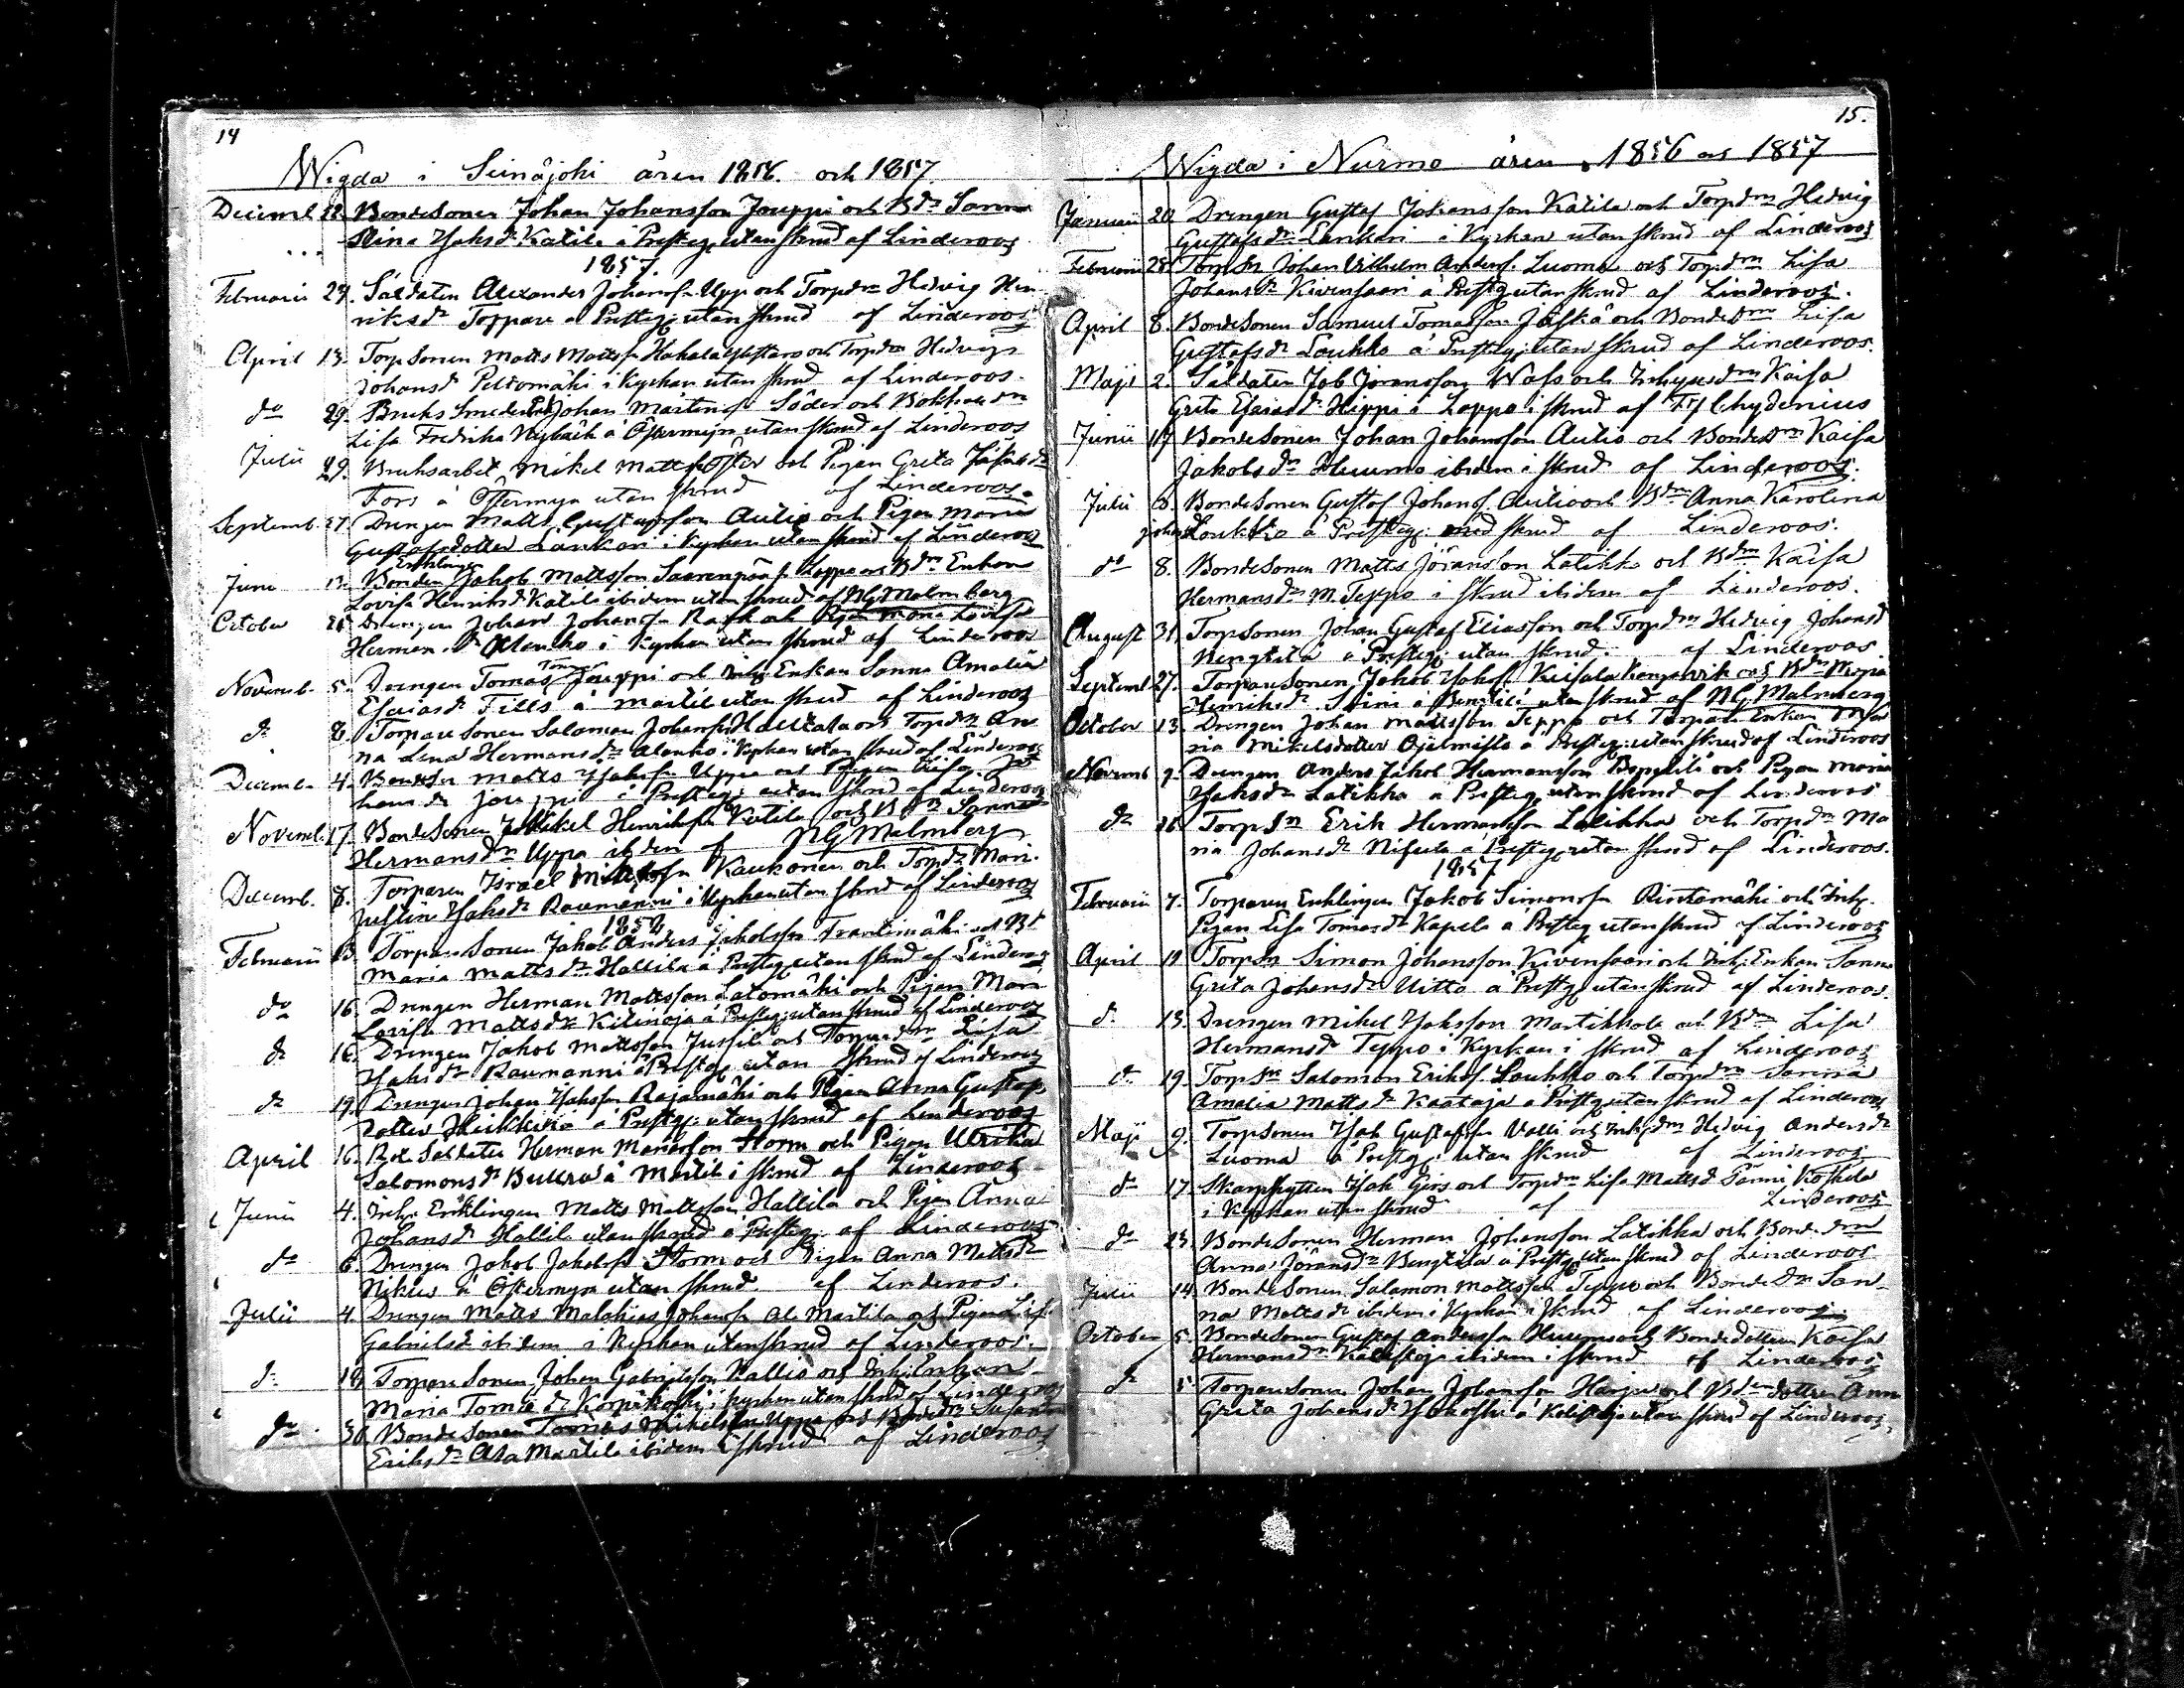 14
Wigda i Seinäjoki åren 1856. och 1857.
Decemb 28. Bondesonen Johan Johansson Jouppi och Bdn Sanna
Stina Isaksdr Katila å Presteg. utan skrud af Linderoos
1857.
Februarii 24. Soldaten Alexander Johansfn Upp och Torpdrn Hedvig Hen
riksdr Torpare å Presteg. utan skrud af Linderoos
April 13. Torpsonen Matts Mattsfn och Torpdrn Hedvig
Johansdr Peltomäki i Kyrkan utan skrud af Linderoos.
do 29. Bruks Smeden Johan Mårtensfn Söder och
Lisa Fredrika Nybäck å Östermyra utan skrud af Linderoos
Julii 29. Bruksarbet. Mikel Mattsfn Öster och Pigan Greta
Fors å Östermyra utan skrud af Linderoos.
Septemb. 27. Drengen Matts Gustafsson Autio och Pigan Maria
Gustafsdotter Lankari i Kyrkan utan skrud af Linderoos
Enklingen
Juni 13. Bonden Jakob Mattsson Saarenpää fr. Lappo och Bdn Enkan
Lovisa Henriksdr Katila ibidem utan skrud af NG Malmberg
October 25. Drengen Johan Johansfn Rask och Pigan Maria Lovisa
Hermansdr Alanko i Kyrkan utan skrud af Linderoos
Novemb. 5. Drengen Tomas Jouppi och Inhy. Enkan Sanna Amalia
Esaiasdr Fills å Martila utan skrud af Linderoos
do 8. Torparesonen Salomon Johansfn Hallila och Torpdrn An
na Lena Hermansdr Alanko i Kyrkan utan skrud af Linderoos
Decemb. 4. Matts Isaksfn Uppa och Pigan Lisa Jo
hansdr Jouppi å Presteg. utan skrud af Linderoos
Novemb. 17. Bondesonen Mikel Henriksfn Katila och Bdn Sanna
Hermansdr Uppa ibidem af NG Malmberg
Decemb. 7. Torparen Israel Kaukonen och Torpdr Mari.
Justina Isaksdr Raumanni i Kyrkan utan skrud af Linderoos
1858
Februarii 13. Torparesonen Jakob Anders Jakobsfn Trantimäki och
Maria Mattsdr Hallila å Presteg. utan skrud af Linderoos
do 16. Drengen Herman Mattsson Latomäki och Pigan Maria
Lovisa Mattsdr Kitinoja å Presteg. utan skrud af Linderoos
do 16. Drengen Jakob Mattsson Jussila och Torparedrn Lisa
Isaksdr Raumanni å Presteg. utan skrud af Linderoos
do 19. Drengen Johan Isaksfn Rajamäki och Pigan Anna Gustafs
dotter Heikkinä å Presteg. utan skrud af Linderoos
April 16. Rot Soldaten Herman Mansfon Storm och Pigan Ulrika
Salomonsdr Buttra å Martila i skrud af Linderoos
Junii 4. Inhy. Enklingen Matts Mattsson Hallila och Pigan Anna
Johansdr Hallila utan skrud å Presteg. af Linderoos
do 6. Drengen Jakob Jakobsfn Storm och Pigan Anna Mattsdr
Nikus å Östermyra utan skrud af Linderoos.
Julii 4. Drengen Matts Malakias Johansfn Ala Martila och Pigan Lisa
Gabrielsdr ibidem i Kyrkan utan skrud af Linderoos.
do 18. Torparesonen Johan Gabrielsson Kallio och Inhy. Enkan
Maria Tomasdr Korpikoski i Kyrkan utan skrud af Linderoos
do 30. Bondesonen Tomas Mikelsfn Uppa och Bondedrn Susanna
Eriksdr Ala Martila ibidem i skrud af Linderoos
15.
Wigda i Nurmo åren 1856 och 1857
Januarii 20 Drengen Gustaf Johansson Katila och Torpdrn Hedvig
Gustafsdr Lankari i Kyrkan utan skrud af Linderoos
Februarii 28 Torpsn Johan Vilhelm Andersf. Luoma och Torpdrn Lisa
Johansdr Kivensaari å Presteg utan skrud af Linderoos.
April 8. Bondesonen Samuel Tomasson Jäskä och Bondedrn Lisa
Gustafsdr Loukko å Presteg. utan skrud af Linderoos.
Maji 2. Soldaten Job Jöransson Wass och Inhysedrn Kaisa
Greta Esaiasdr Hippi i Lappo i skrud af Chydenius
Junii 17 Bondesonen Johan Johansson Autio och Bondedrn Kaisa
Jakobsdr Huumo ibidem i skrud af Linderoos.
Julii 8. Bondesonen Gustaf Johansf. Autio och Bdn Anna Karolina
Johansdr Loukko å Presteg. med skrud af Linderoos.
do 8. Bondesonen Matts Jöransson Latikka och Bdn Kaisa
Hermansdr M. Teppo i skrud ibidem af Linderoos.
August 31. Torpsonen Johan Gustaf Eliasson och Torpdrn Hedvig Johansd
Bengtilä å Presteg. utan skrud. af Linderoos
Septemb 27. Torparesonen Jakob Isaksf. och Bdn Maria
Henriksdr utan skrud af NG Malmberg
October 13. Drengen Johan Mattsson Teppo och Torpare Enkan Ma
ria Mikelsdotter Ojalmisto å Presteg. utan skrud af Linderoos
Novemb 9. Drengen Anders Jakob Hermansson och Pigan Maria
Isaksdr Latikka å Presteg. utan skrud af Linderoos
do 16. Torpsn Erik Hermansson Latikka och Torpdrn Ma
ria Johansdr Nisula å Presteg. utan skrud af Linderoos.
1857
Februarii 7. Torparen Enklingen Jakob Simonsfn Rintamäki och Inhy.
Pigan Lisa Tomasdr Kapela å Presteg utan skrud af Linderoos
April 19 Torpsn Simon Johansson Kivensaari och Inhy. Enkan Sanna
Greta Johansdr Uitto å Presteg utan skrud af Linderoos.
do 13. Drengen Mikel Isaksson Martikkala och Bdn Lisa
Hermansdr Teppo i Kyrkan i skrud af Linderoos
do 19. Torpsn Salomon Eriksf. Loukko och Torpdrn Sanna
Amalia Mattsdr Kaataja å Presteg utan skrud af Linderoos
Maji 9. Torpsonen Isak Gustafsfn Valli och Inhydrn Hedvig Andersdr
Luoma å Presteg. utan skrud af Linderoos
do 17 Skarpskytten Isak Girs och Torpdrn Lisa Mattsd Panni Koskela
i Kyrkan utan skrud af Linderoos
do 23. Bondesonen Herman Johansson Latikka och Bondedrn
Anna Jöransdr Bengtila å Presteg. utan skrud af Linderoos
Julii 14. Bondesonen Salomon Mattsson Teppo och Bondedrn San
na Mattsdr ibidem i Kyrkan i skrud af Linderoos.
October 5. Bondesonen Gustaf Andersfn Huumo och Bondedottren Kaisa
Hermansdr ibidem i skrud af Linderoos
do 5. Torparesonen Johan Johansfn Harju och Bdedottren Anna
Greta Johansdr utan skrud af Linderoos.